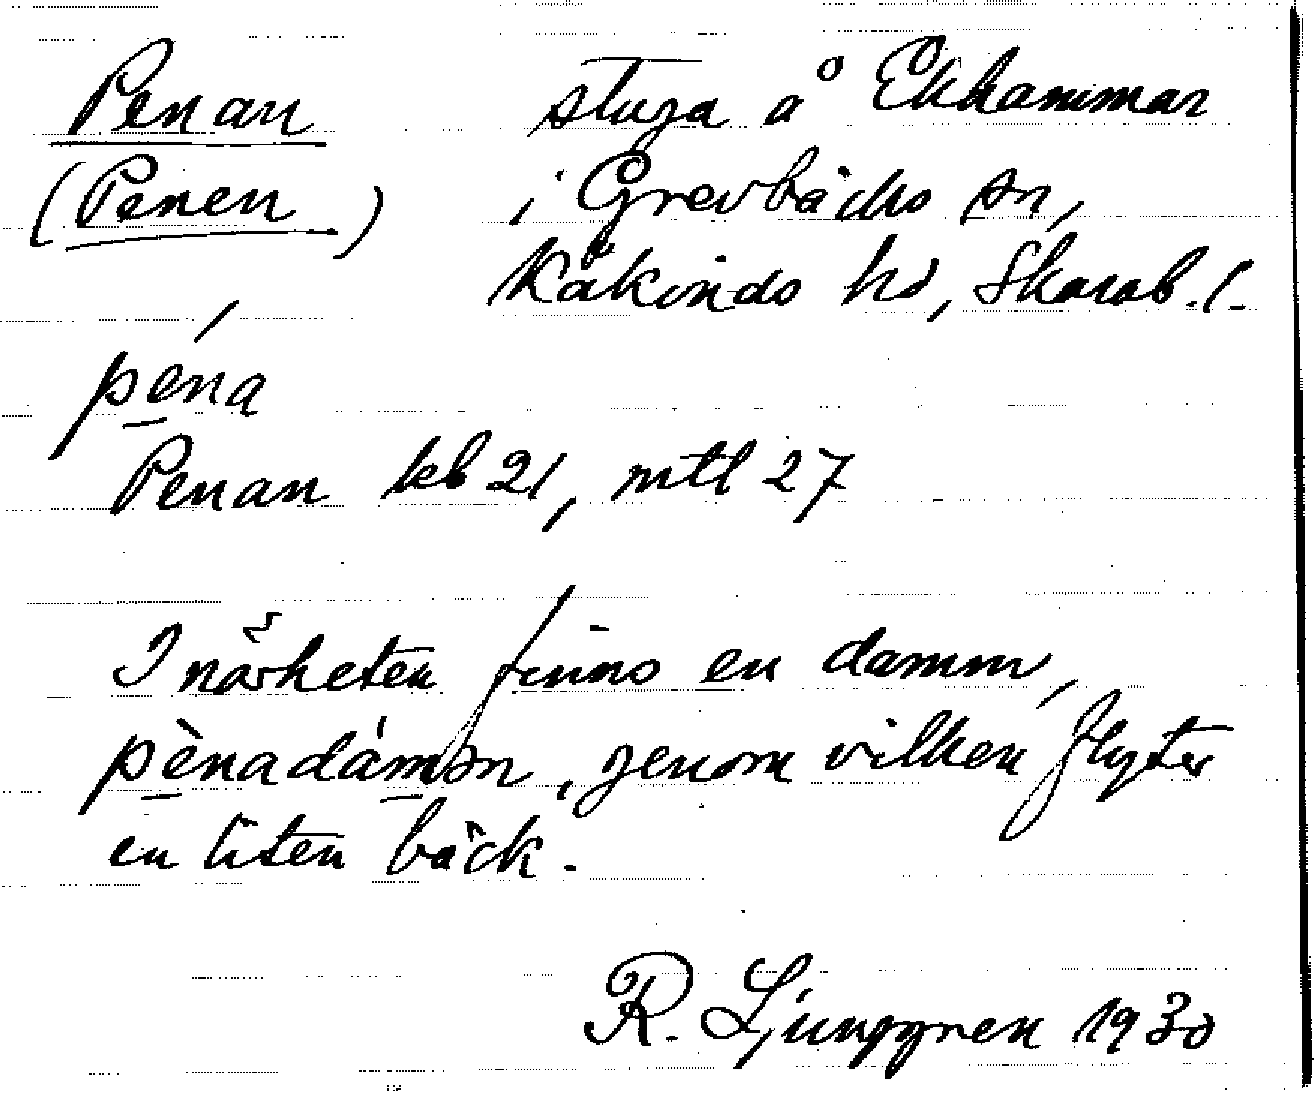 Penan stuga å Ekhammar
(Penen) i Grevbäcks sn,
Kåkinds hd, Skarab. l.
péna
Penan kb 21, mtl 27
I närheten finns en damm,
pènadámən, genom vilken flyter
en liten bäck.
R. Ljunggren 1930